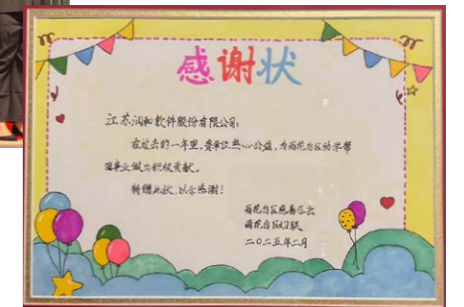 感谢状
江苏润和软件股份有限公司:
在过去的一年里,贵单位热心公益,为雨花台区助学帮
困事业做出积极贡献。
特赠此状,以示感谢!
雨花台区慈善总会
雨花台区妇联
二〇二五年二月